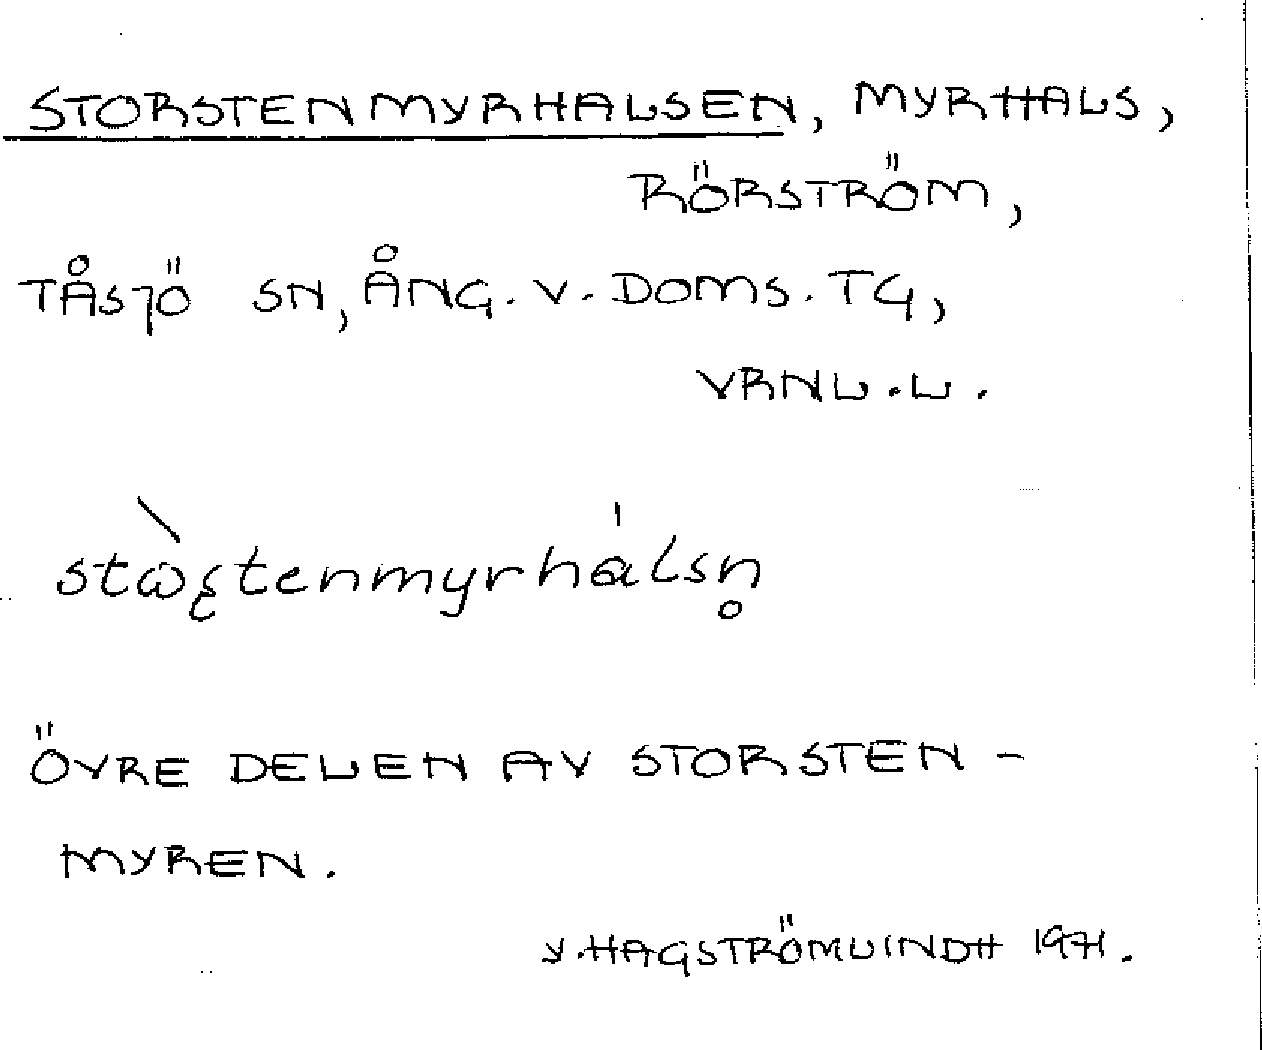 STORSTENMYRHALSEN, MYRHALS,
RÖRSTRÖM,
TÅSJÖ SN, ÅNG. V. DOMS. TG,
VRNL. L.
stὼʂtenmyrhálsn̥
ÖVRE DELEN AV STORSTEN-
MYREN.
Y. HAGSTRÖMLINDH 1971.